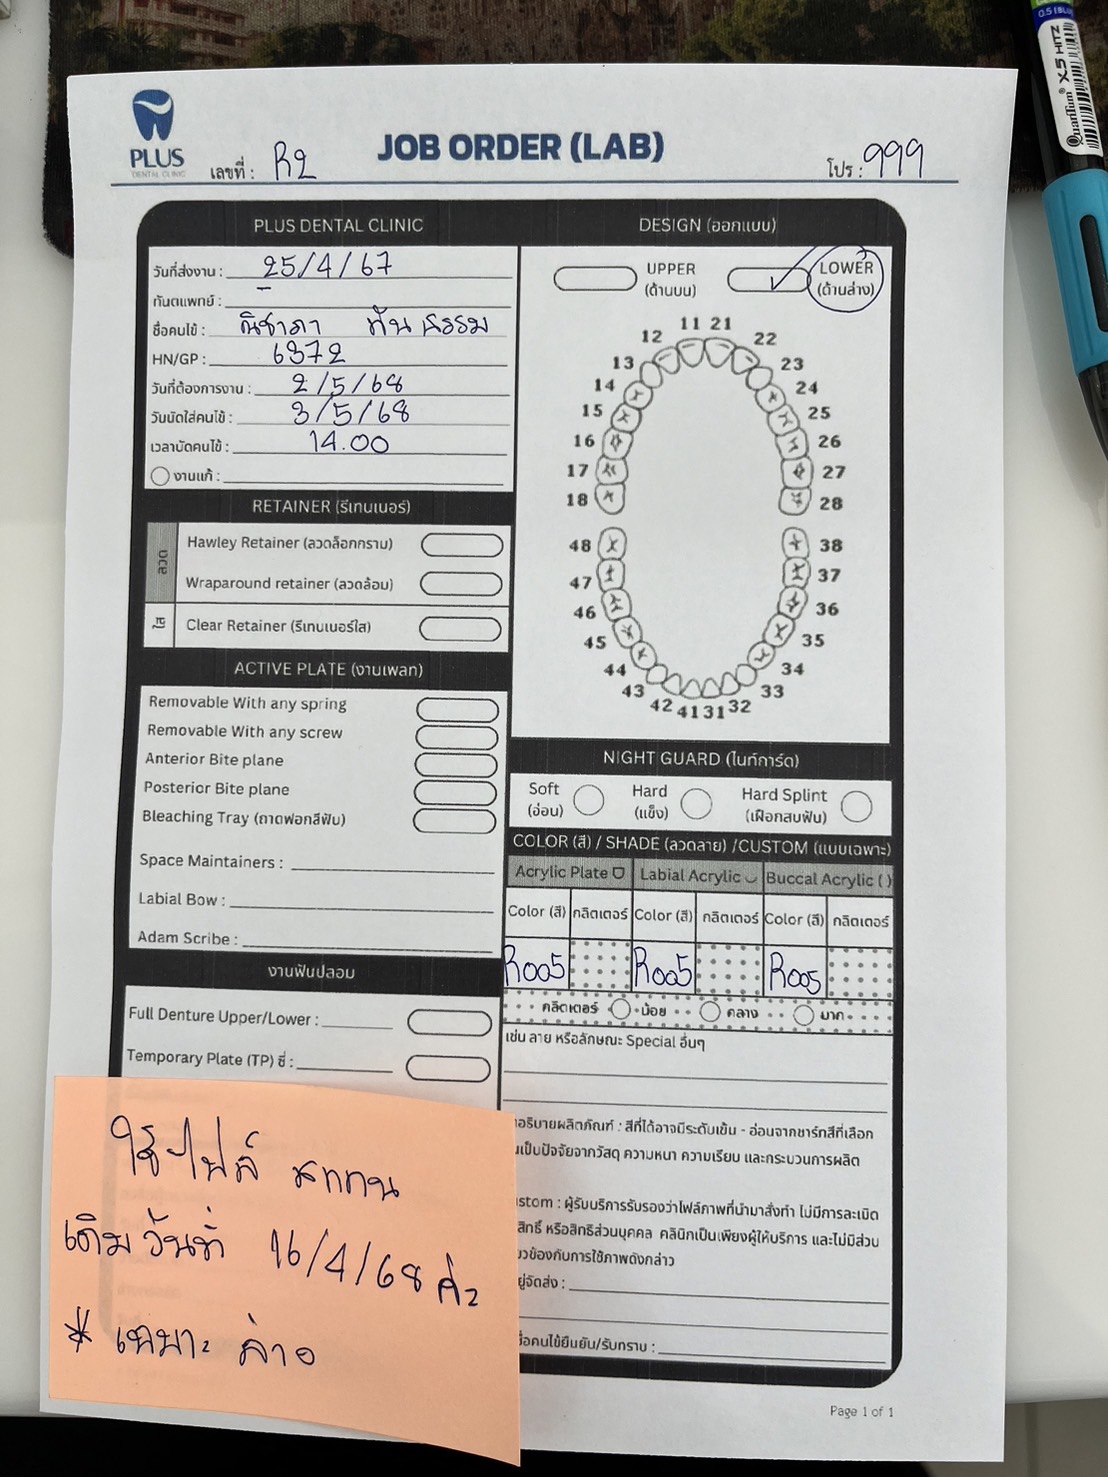 PLUS
DENTAL CLINIC
เลขที่ : R2
JOB ORDER (LAB)
โปร : 999
PLUS DENTAL CLINIC
วันที่ส่งงาน : 25/4/67
ทันตแพทย์ :
ชื่อคนไข้ : ณิชาภา ทันธรรม
HN/GP : 6372
วันที่ต้องการงาน : 2/5/68
วันนัดใส่คนไข้ : 3/5/68
เวลานัดคนไข้ : 14.00
งานแก้ :
RETAINER (รีเทนเนอร์)
ลวด
Hawley Retainer (ลวดล็อกกราม)
Wraparound retainer (ลวดล้อม)
ใส
Clear Retainer (รีเทนเนอร์ใส)
ACTIVE PLATE (งานเพลท)
Removable With any spring
Removable With any screw
Anterior Bite plane
Posterior Bite plane
Bleaching Tray (ถาดฟอกสีฟัน)
Space Maintainers :
Labial Bow :
Adam Scribe :
งานฟันปลอม
Full Denture Upper/Lower :
Temporary Plate (TP) ซี่ :
ใช้ไฟล์ สแกน
เดิมวันที่ 16/4/68 ค่ะ
* เฉพาะ ล่าง
DESIGN (ออกแบบ)
UPPER
(ด้านบน)
LOWER
(ด้านล่าง)
11 21
12 22
13 23
14 24
15 25
16 26
17 27
18 28
48 38
47 37
46 36
45 35
44 34
43 33
42 41 31 32
NIGHT GUARD (ไนท์การ์ด)
Soft
(อ่อน)
Hard
(แข็ง)
Hard Splint
(เฝือกสบฟัน)
COLOR (สี) / SHADE (ลวดลาย) /CUSTOM (แบบเฉพาะ)
Acrylic Plate Labial Acrylic Buccal Acrylic ( )
Color (สี) กลิตเตอร์ Color (สี) กลิตเตอร์ Color (สี) กลิตเตอร์
R005 R005 R005
กลิตเตอร์ น้อย กลาง มาก
เช่น ลาย หรือลักษณะ Special อื่นๆ
อธิบายผลิตภัณฑ์ : สีที่ได้อาจมีระดับเข้ม - อ่อนจากชาร์ทสีที่เลือก
นเป็นปัจจัยจากวัสดุ ความหนา ความเรียบ และกระบวนการผลิต
stom : ผู้รับบริการรับรองว่าไฟล์ภาพที่นำมาสั่งทำ ไม่มีการละเมิด
สิทธิ์ หรือสิทธิส่วนบุคคล คลินิกเป็นเพียงผู้ให้บริการ และไม่มีส่วน
วข้องกับการใช้ภาพดังกล่าว
ยู่จัดส่ง :
อคนไข้ยืนยัน/รับทราบ :
Page 1 of 1
QuanTum X5 HITZ
0.5 (BLU